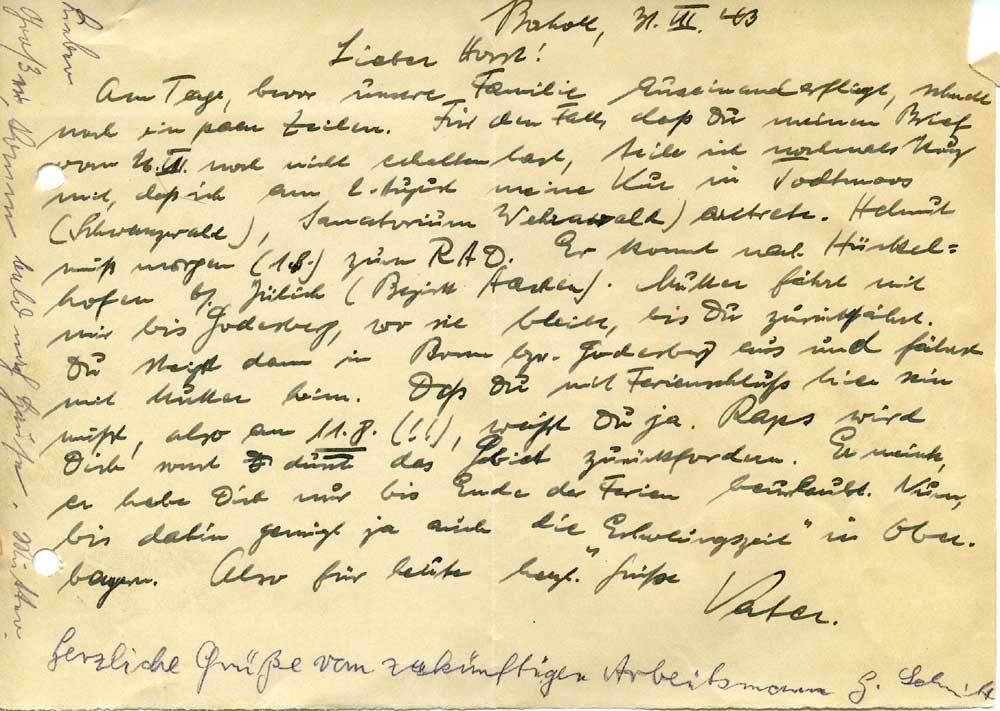 Bocholt, 31. VII. 43
Lieber Horst!
Am Tage, bevor unsere Familie auseinanderfliegt, schnell
noch ein paar Zeilen. Für den Fall, daß Du meinen Brief
vom VII. noch nicht erhalten hast, teile ich nochmals kurz
mit, daß ich am 2. August meine Kur in Todtmoos
(Schwarzwald), Sanatorium Wehrawald) antrete. Helmut
muß morgen (1.8.) zum RAD. Er kommt nach Hückel=
hofen b/ Jülich (Bezirk Aachen). Mutter fährt mit
mir bis Godesberg, wo sie bleibt, bis Du zurückfährst.
Du steigst dann in Bonn bzw. Godesberg aus und fährst
mit Mutter heim. Daß Du mit Ferienschluß hier sein
mußt, also am 11.8. (!!), weißt Du ja. Raps wird
Dich sonst durch das Gebiet zurückfordern. Er meint,
er habe Dich nur bis Ende der Ferien beurlaubt. Nun,
bis dahin genügt ja auch die "Erholungszeit" in Ober-
bayern. Also für heute herzl. Grüße
Vater.
Herzliche Grüße vom zukünftigen Arbeitsmann H. Schmitt
Lieben
Gruß u. komm bald nach Hause. Mutter.